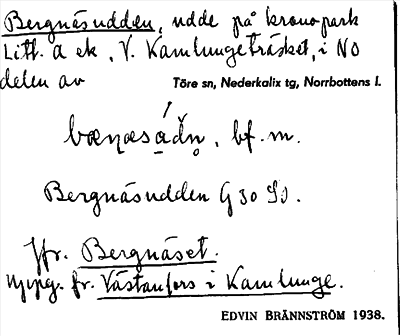 Bergnäsudden, udde på kronopark
Litt. A ek, V. Kamlungeträsket, i NO
delen av Töre sn, Nederkalix tg, Norrbottens l.
bf. m.
Bergnäsudden G 30 SO.
Jfr. Bergnäset.
fr. Västanfors i Kamlunge.
EDVIN BRÄNNSTRÖM 1938.